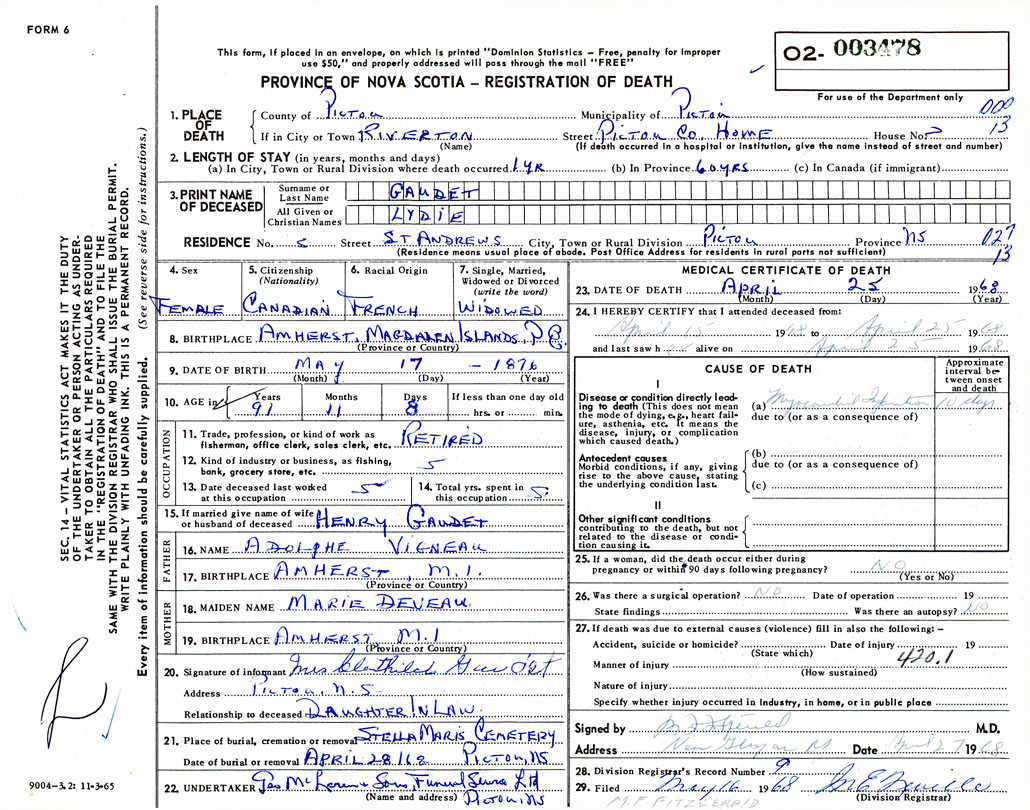 FORM 6
This form, if placed in an envelope, on which is printed "Dominion Statistics – Free, penalty for improper
use $50," and properly addressed will pass through the mail "FREE"
02- 003478
PROVINCE OF NOVA SCOTIA – REGISTRATION OF DEATH
For use of the Department only
1. PLACE OF DEATH
County of Pictou Municipality of Pictou 000
If in City or Town RIVERTON Street Pictou Co. Home House No. 13
(Name) (If death occurred in a hospital or institution, give the name instead of street and number)
2. LENGTH OF STAY (in years, months and days)
(a) In City, Town or Rural Division where death occurred 1 YR (b) In Province 60 YRS (c) In Canada (if immigrant)
3. PRINT NAME OF DECEASED
Surname or Last Name GAUDET
All Given or Christian Names LYDIE
RESIDENCE No. Street ST ANDREWS City, Town or Rural Division Pictou Province NS 027
(Residence means usual place of abode. Post Office Address for residents in rural parts not sufficient) 13
4. Sex FEMALE
5. Citizenship (Nationality) CANADIAN
6. Racial Origin FRENCH
7. Single, Married, Widowed or Divorced (write the word) WIDOWED
8. BIRTHPLACE AMHERST, MAGDALEN ISLANDS, P.Q.
(Province or Country)
9. DATE OF BIRTH MAY 17 – 1876
(Month) (Day) (Year)
10. AGE in Years Months Days If less than one day old
91 11 8 hrs. or min.
OCCUPATION
11. Trade, profession, or kind of work as fisherman, office clerk, sales clerk, etc. RETIRED
12. Kind of industry or business, as fishing, bank, grocery store, etc.
13. Date deceased last worked at this occupation
14. Total yrs. spent in this occupation
15. If married give name of wife or husband of deceased HENRY GAUDET
FATHER
16. NAME ADOLPHE VIGNEAU
17. BIRTHPLACE AMHERST, M.I.
(Province or Country)
MOTHER
18. MAIDEN NAME MARIE DEVEAU
19. BIRTHPLACE AMHERST M.I
(Province or Country)
20. Signature of informant Mrs Clothilda Gaudet
Address Pictou, N.S
Relationship to deceased DAUGHTER IN LAW
21. Place of burial, cremation or removal STELLA MARIS CEMETERY
Date of burial or removal APRIL 28/68 PICTOU, NS
22. UNDERTAKER Geo McLaren Sons, Funeral Ltd
(Name and address) Pictou, NS
MEDICAL CERTIFICATE OF DEATH
23. DATE OF DEATH APRIL 25 1968
(Month) (Day) (Year)
24. I HEREBY CERTIFY that I attended deceased from:
April 15 1968 to April 25 1968
and last saw h er alive on April 25 1968
CAUSE OF DEATH
Approximate interval between onset and death
I
Disease or condition directly leading to death (This does not mean the mode of dying, e.g., heart failure, asthenia, etc. It means the disease, injury, or complication which caused death.)
(a) Myocardial Infarction 10 days
due to (or as a consequence of)
Antecedent causes
Morbid conditions, if any, giving rise to the above cause, stating the underlying condition last.
(b)
due to (or as a consequence of)
(c)
II
Other significant conditions contributing to the death, but not related to the disease or condition causing it.
25. If a woman, did the death occur either during pregnancy or within 90 days following pregnancy? NO
(Yes or No)
26. Was there a surgical operation? NO Date of operation 19
State findings Was there an autopsy? NO
27. If death was due to external causes (violence) fill in also the following: –
Accident, suicide or homicide? Date of injury 19
(State which)
Manner of injury 420.1
(How sustained)
Nature of injury
Specify whether injury occurred in Industry, in home, or in public place
Signed by M.D.
Address New Glasgow NS Date April 27 1968
28. Division Registrar's Record Number 9
29. Filed May 16 1968
(Division Registrar)
M.F. FITZGERALD
SEC. 14 – VITAL STATISTICS ACT MAKES IT THE DUTY
OF THE UNDERTAKER OR PERSON ACTING AS UNDER-
TAKER TO OBTAIN ALL THE PARTICULARS REQUIRED
IN THE "REGISTRATION OF DEATH" AND TO FILE THE
SAME WITH THE DIVISION REGISTRAR WHO SHALL ISSUE THE BURIAL PERMIT.
WRITE PLAINLY WITH UNFADING INK. THIS IS A PERMANENT RECORD.
Every item of information should be carefully supplied. (See reverse side for instructions.)
9004-3.2: 11-3-65